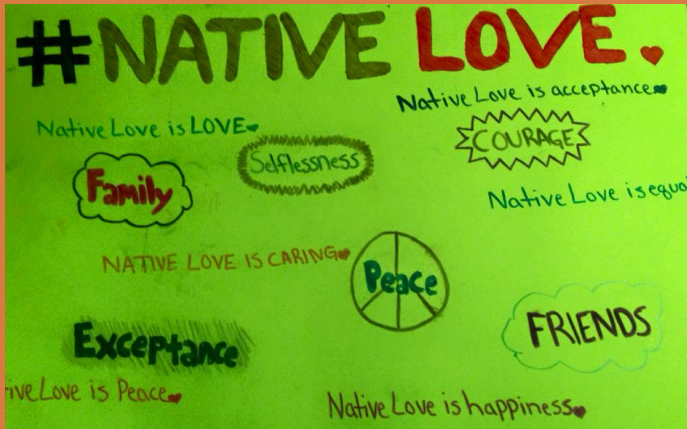 #NATIVE LOVE.
Native Love is acceptance
Native Love is LOVE
Selflessness
COURAGE
Family
Native Love is equa
NATIVE LOVE IS CARING
Peace
FRIENDS
Exceptance
ive Love is Peace
Native Love is happiness